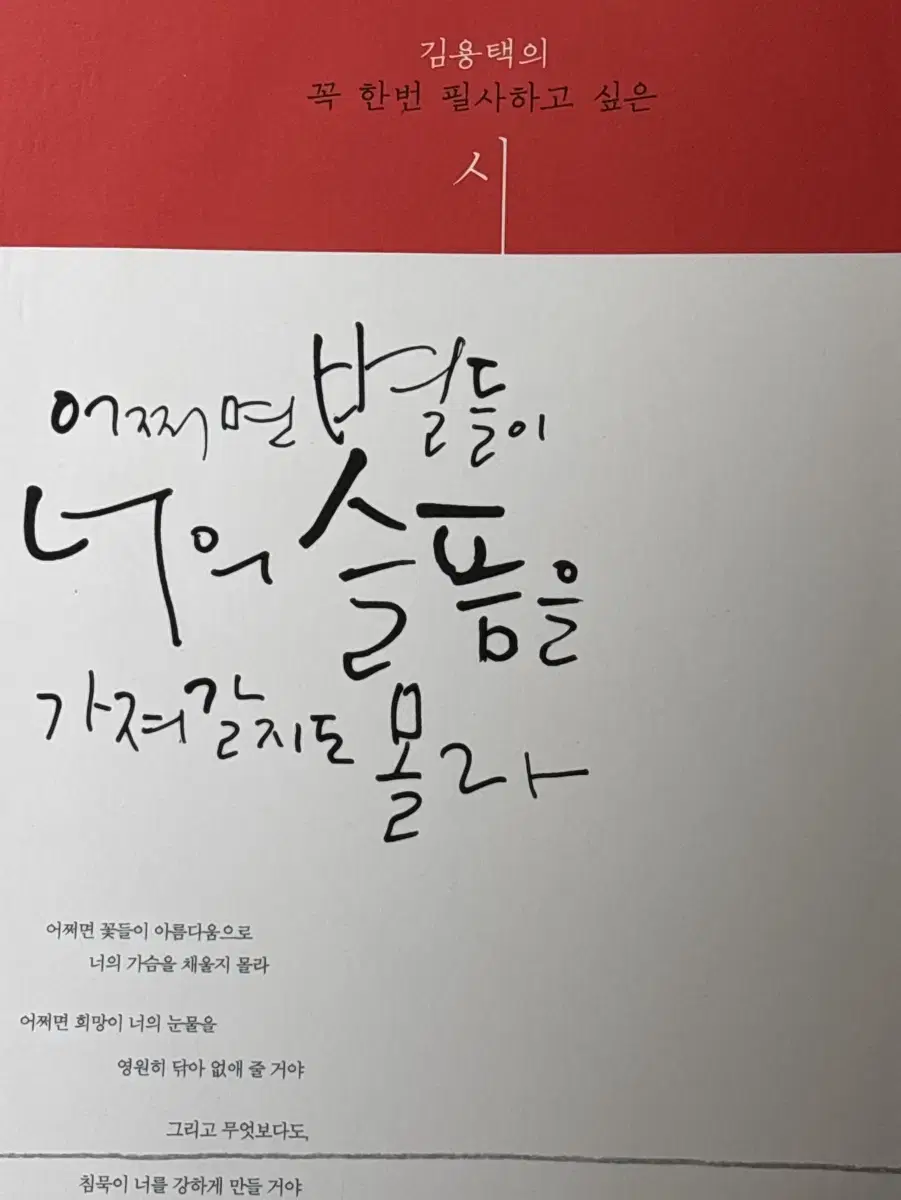 김용택의
꼭 한번 필사하고 싶은
시
어쩌면 별들이
너의 슬픔을
가져갈지도 몰라
어쩌면 꽃들이 아름다움으로
너의 가슴을 채울지 몰라
어쩌면 희망이 너의 눈물을
영원히 닦아 없애 줄 거야
그리고 무엇보다도,
침묵이 너를 강하게 만들 거야